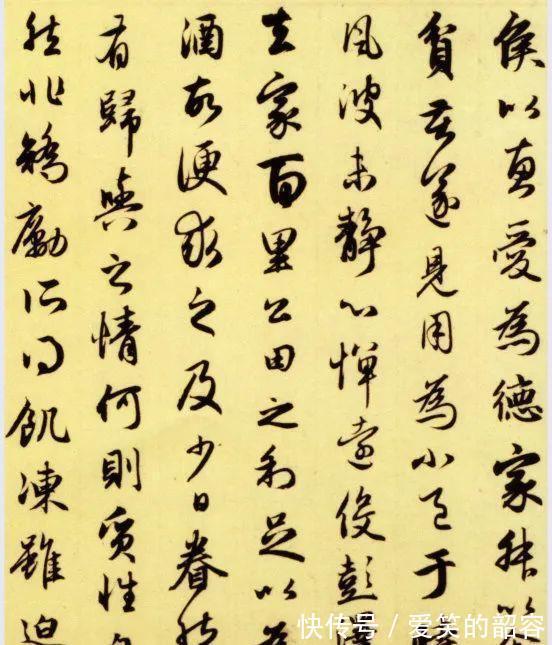 侯以惠愛為德家叔以
貧苦遂見用為小邑于
風波未靜心憚遠役彭
去家百里公田之利足以為
酒故便求之及少日眷然
有歸與之情何則質性
然非矯勵所得飢凍雖迫
快传号 / 爱笑的韶容